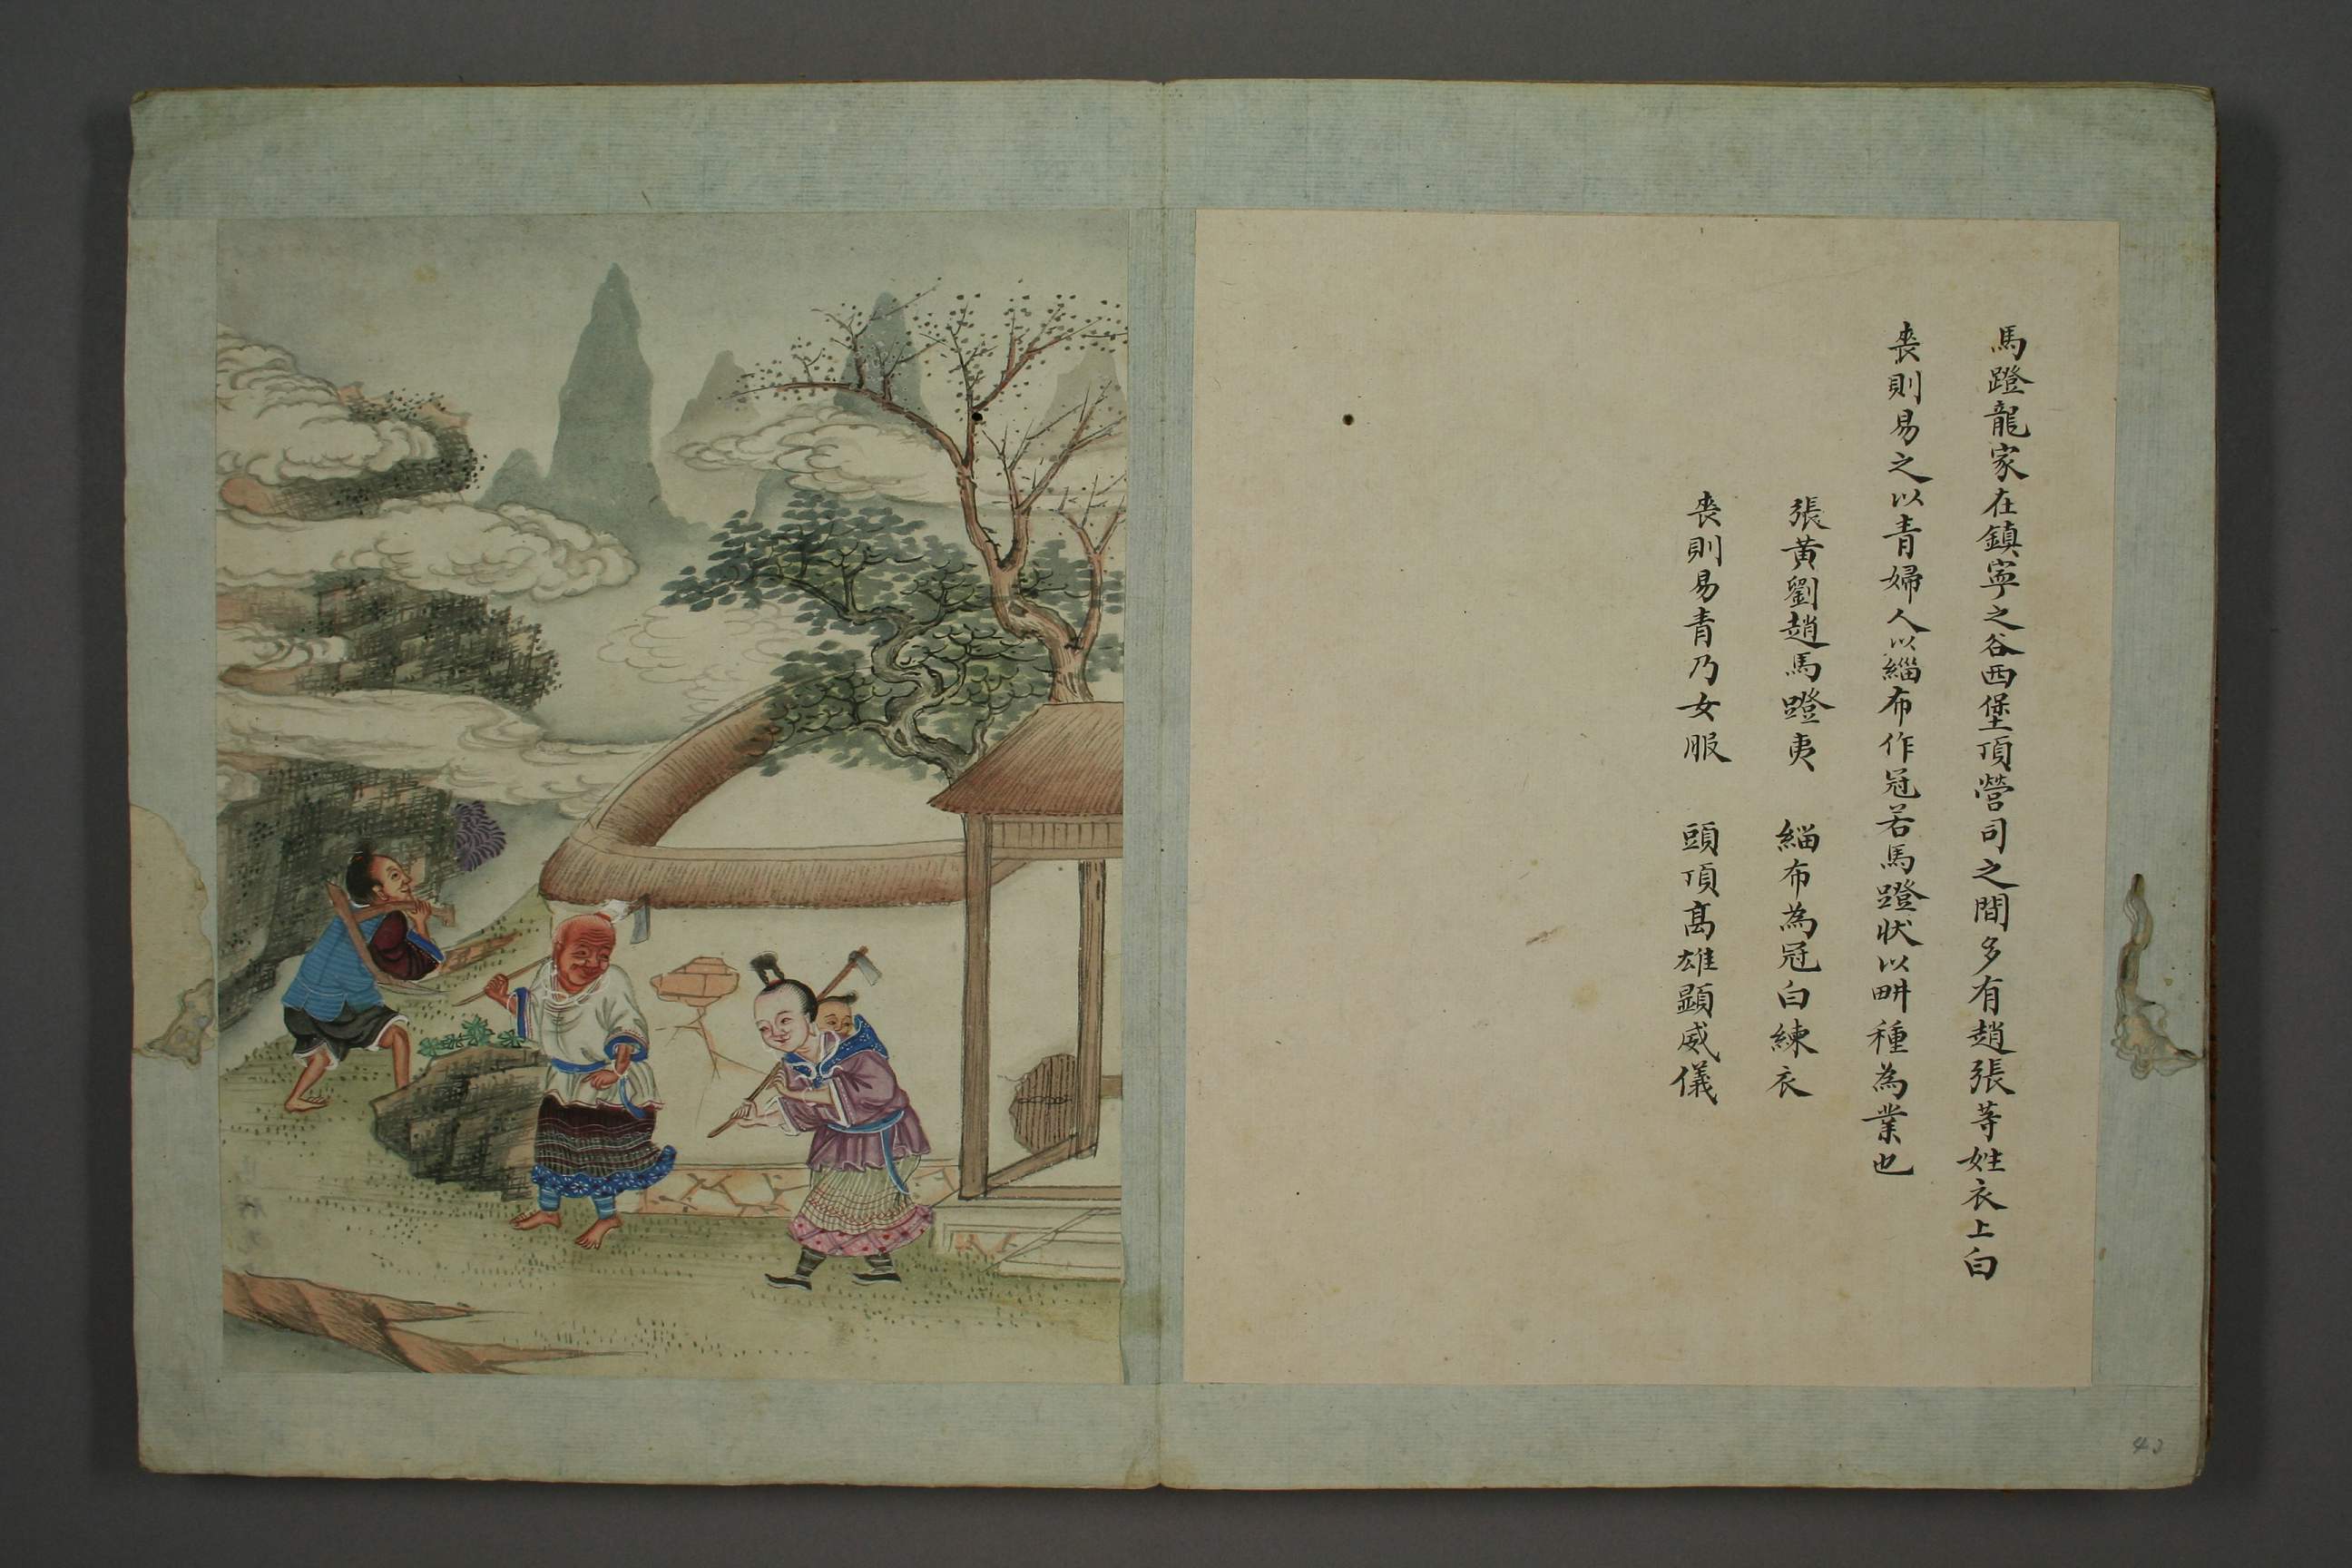 馬蹬龍家在鎮寧之谷西堡頂營司之間多有趙張等姓衣上白
喪則易之以青婦人以緇布作冠若馬蹬狀以畊種為業也
張黃劉趙馬蹬夷　緇布為冠白練衣
喪則易青乃女服　頭頂髙雄顕威儀